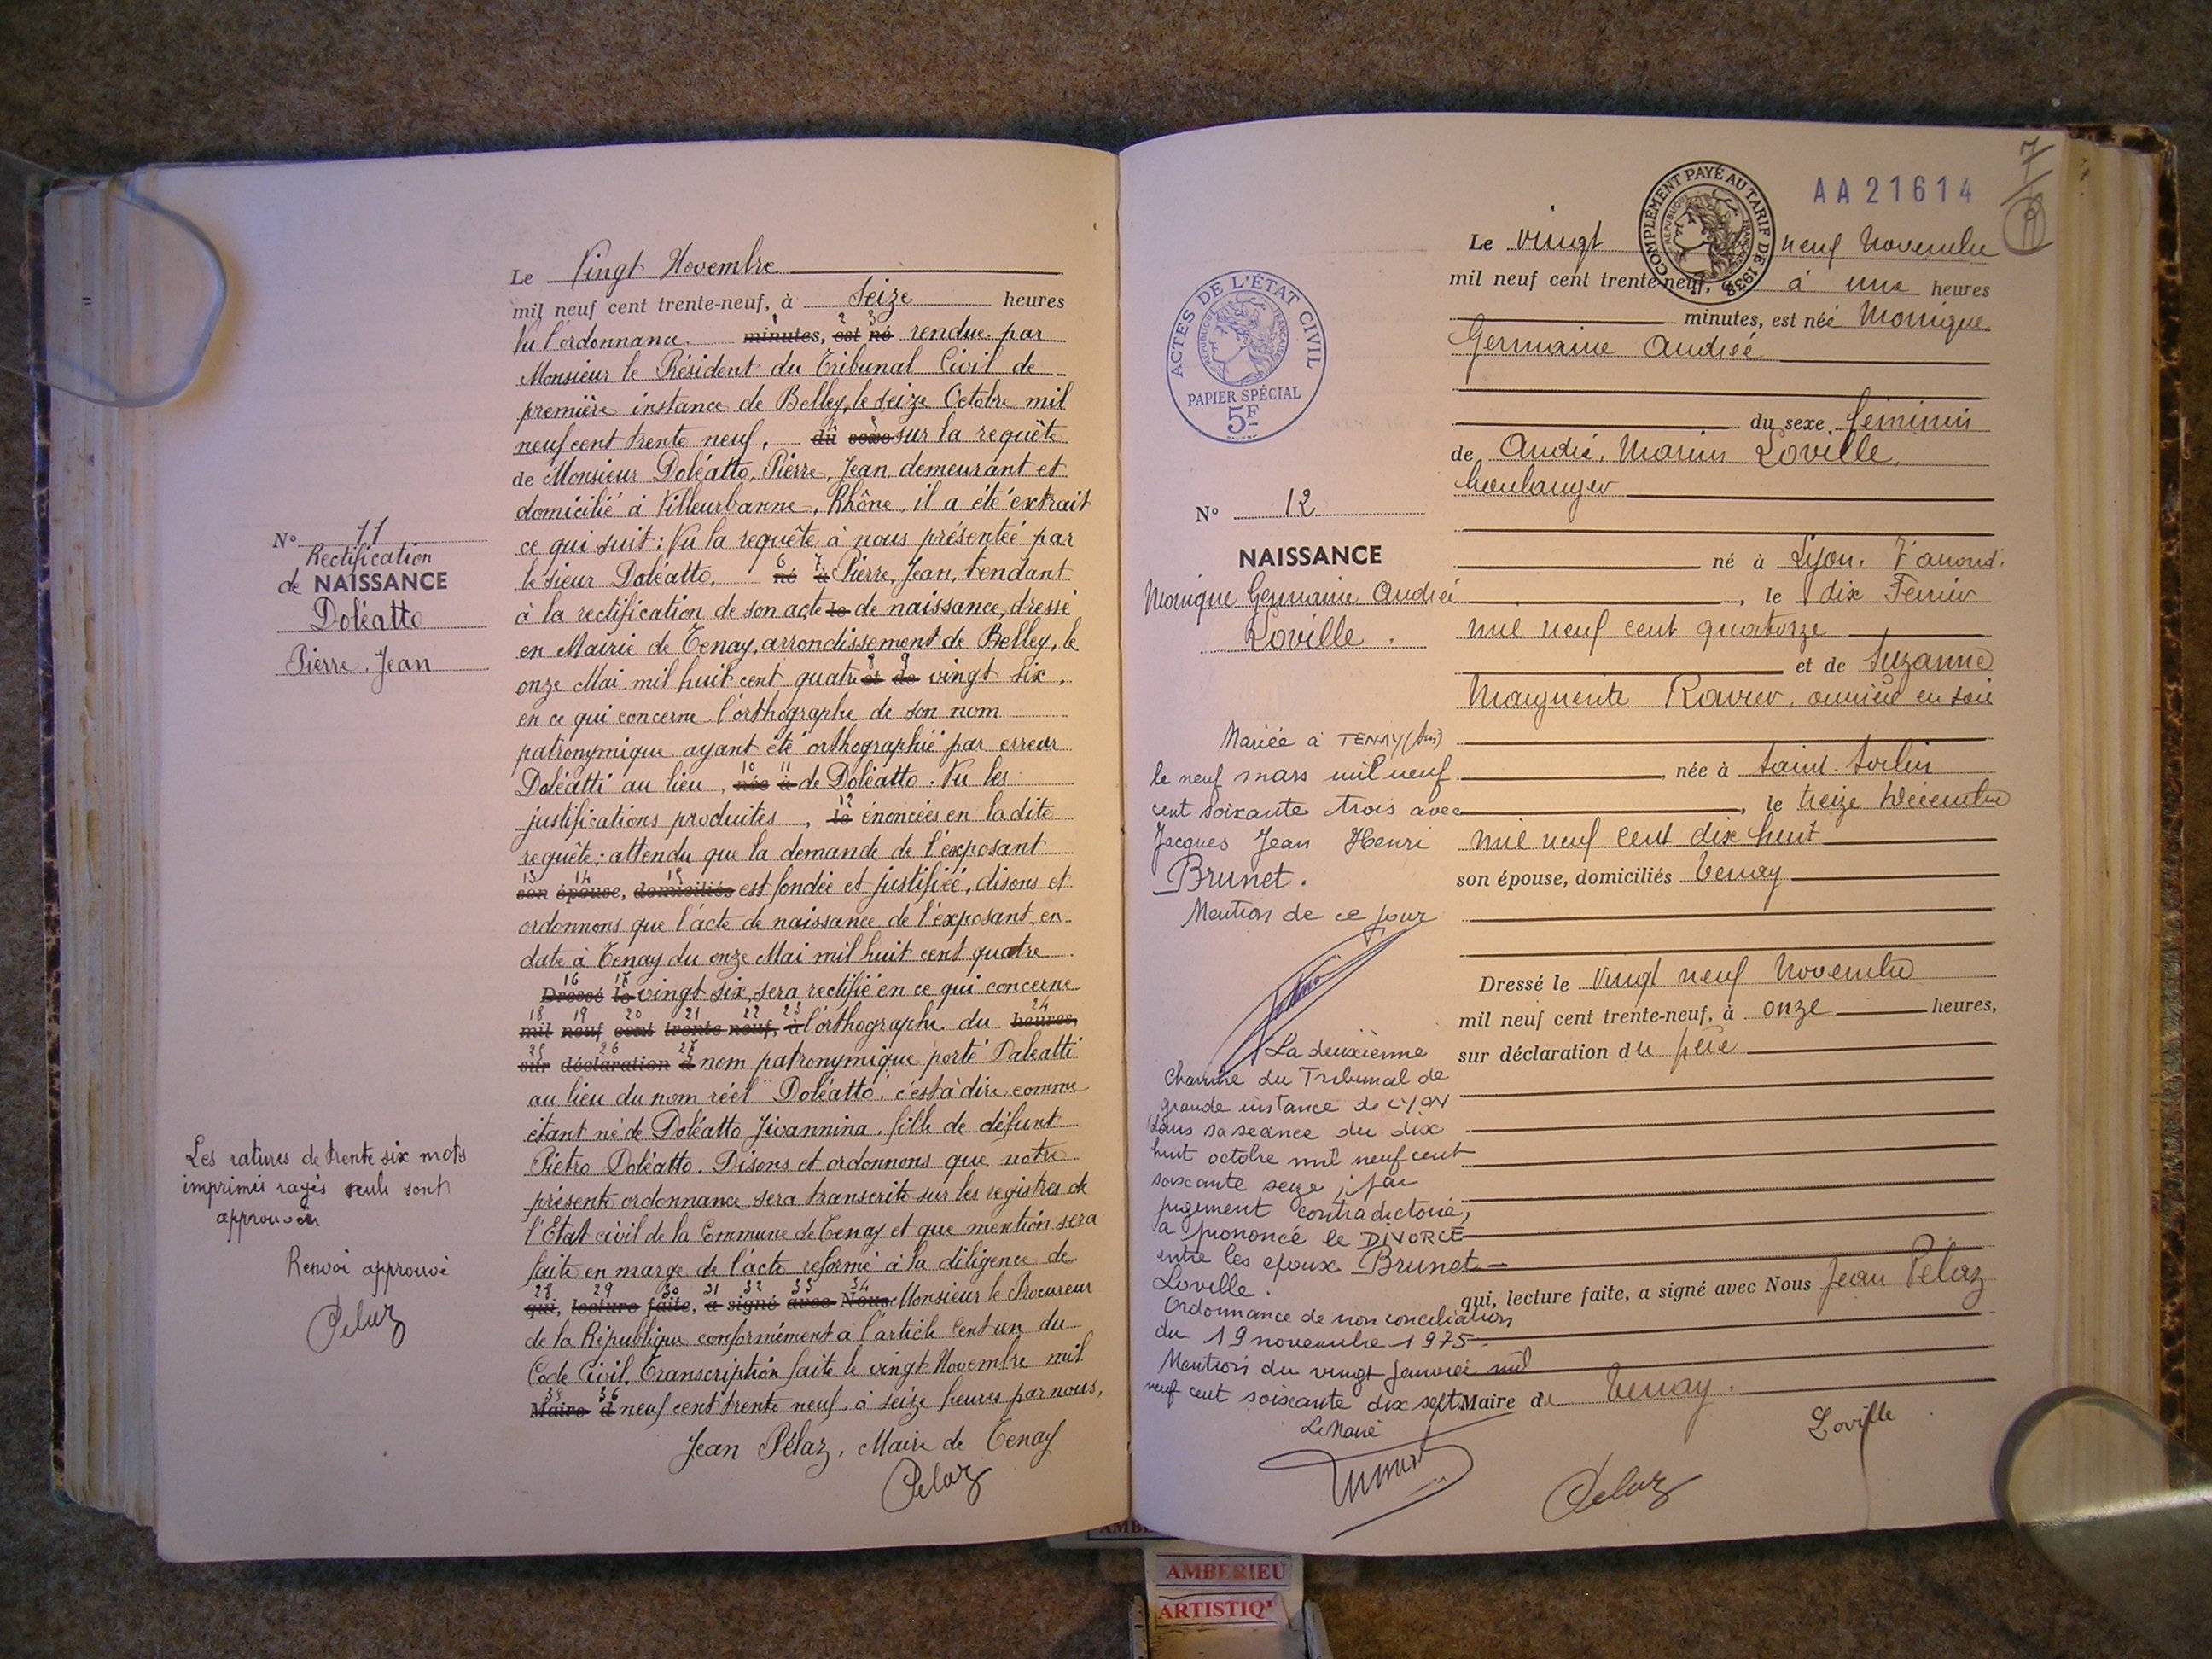 Le Vingt Novembre
mil neuf cent trente-neuf, à Seize heures
Vu l'ordonnance minutes, est né rendue par
Monsieur le Président du Tribunal Civil de
première instance de Belley, le seize Octobre mil
neuf cent trente neuf, du sexe sur la requête
de Monsieur Doléatto, Pierre, Jean, demeurant et
domicilié à Villeurbanne, Rhône, il a été extrait
ce qui suit : Vu la requête à nous présentée par
le sieur Doléatto, né à Pierre, Jean, tendant
à la rectification de son acte le de naissance, dressé
en Mairie de Tenay, arrondissement de Belley, le
onze Mai mil huit cent quatre et de vingt six,
en ce qui concerne l'orthographe de son nom
patronymique ayant été orthographié par erreur
Doléatti au lieu, née à de Doléatto. Vu les
justifications produites, le énoncées en la dite
requête ; attendu que la demande de l'exposant
son épouse, domiciliés est fondée et justifiée, disons et
ordonnons que l'acte de naissance de l'exposant en
date à Tenay du onze Mai mil huit cent quatre
Dressé le vingt six, sera rectifié en ce qui concerne
mil neuf cent trente-neuf, à l'orthographe du heures,
sur déclaration d nom patronymique porté Doleatti
au lieu du nom réel "Doléatto", c'est à dire comme
étant né de Doléatto Jivannina, fille de défunt
Piétro Doléatto. Disons et ordonnons que notre
présente ordonnance sera transcrite sur les registres de
l'Etat civil de la Commune de Tenay et que mention sera
faite en marge de l'acte réformé à la diligence de
qui, lecture faite, a signé avec Nous Monsieur le Procureur
de la République conformément à l'article Cent un du
Code Civil. Transcription faite le vingt Novembre mil
Maire d neuf cent trente neuf, à seize heures par nous,
Jean Pélaz, Maire de Tenay
Pelaz
N° 11
Rectification
de NAISSANCE
Doléatto
Pierre, Jean
Les ratures de trente six mots
imprimés rayés seuls sont
approuvées
Renvoi approuvé
Pelaz
7
AA 21614
COMPLÉMENT PAYÉ AU TARIF DE 1938
RÉPUBLIQUE FRANÇAISE
ACTES DE L'ÉTAT CIVIL
RÉPUBLIQUE FRANÇAISE
PAPIER SPÉCIAL
5F
N° 12
NAISSANCE
Monique Germaine Andrée
Loville.
Le vingt neuf Novembre
mil neuf cent trente-neuf, à une heures
minutes, est née Monique
Germaine Andrée
du sexe féminin
de André, Marius Loville,
boulanger
né à Lyon, 7 arrond.
, le dix Fevrier
mil neuf cent quatorze
et de Suzanne
Marguerite Ravier, ouvrière en soie
, née à Saint Sorlin
, le treize Décembre
mil neuf cent dix huit
son épouse, domiciliés Tenay
Dressé le vingt neuf Novembre
mil neuf cent trente-neuf, à onze heures,
sur déclaration du père
qui, lecture faite, a signé avec Nous Jean Pelaz
Maire de Tenay.
Loville
Pelaz
Mariée à TENAY (Ain)
le neuf mars mil neuf
cent soixante trois avec
Jacques Jean Henri
Brunet.
Mention de ce jour
La deuxième
chambre du Tribunal de
grande instance de LYON
dans sa seance du dix
huit octobre mil neuf cent
soixante seize, par
jugement contradictoire,
a prononcé le DIVORCE
entre les epoux Brunet -
Loville.
Ordonnance de non conciliation
du 19 novembre 1975
Mention du vingt janvier mil
neuf cent soixante dix sept
Le Maire
AMBERIEU
ARTISTIQ'